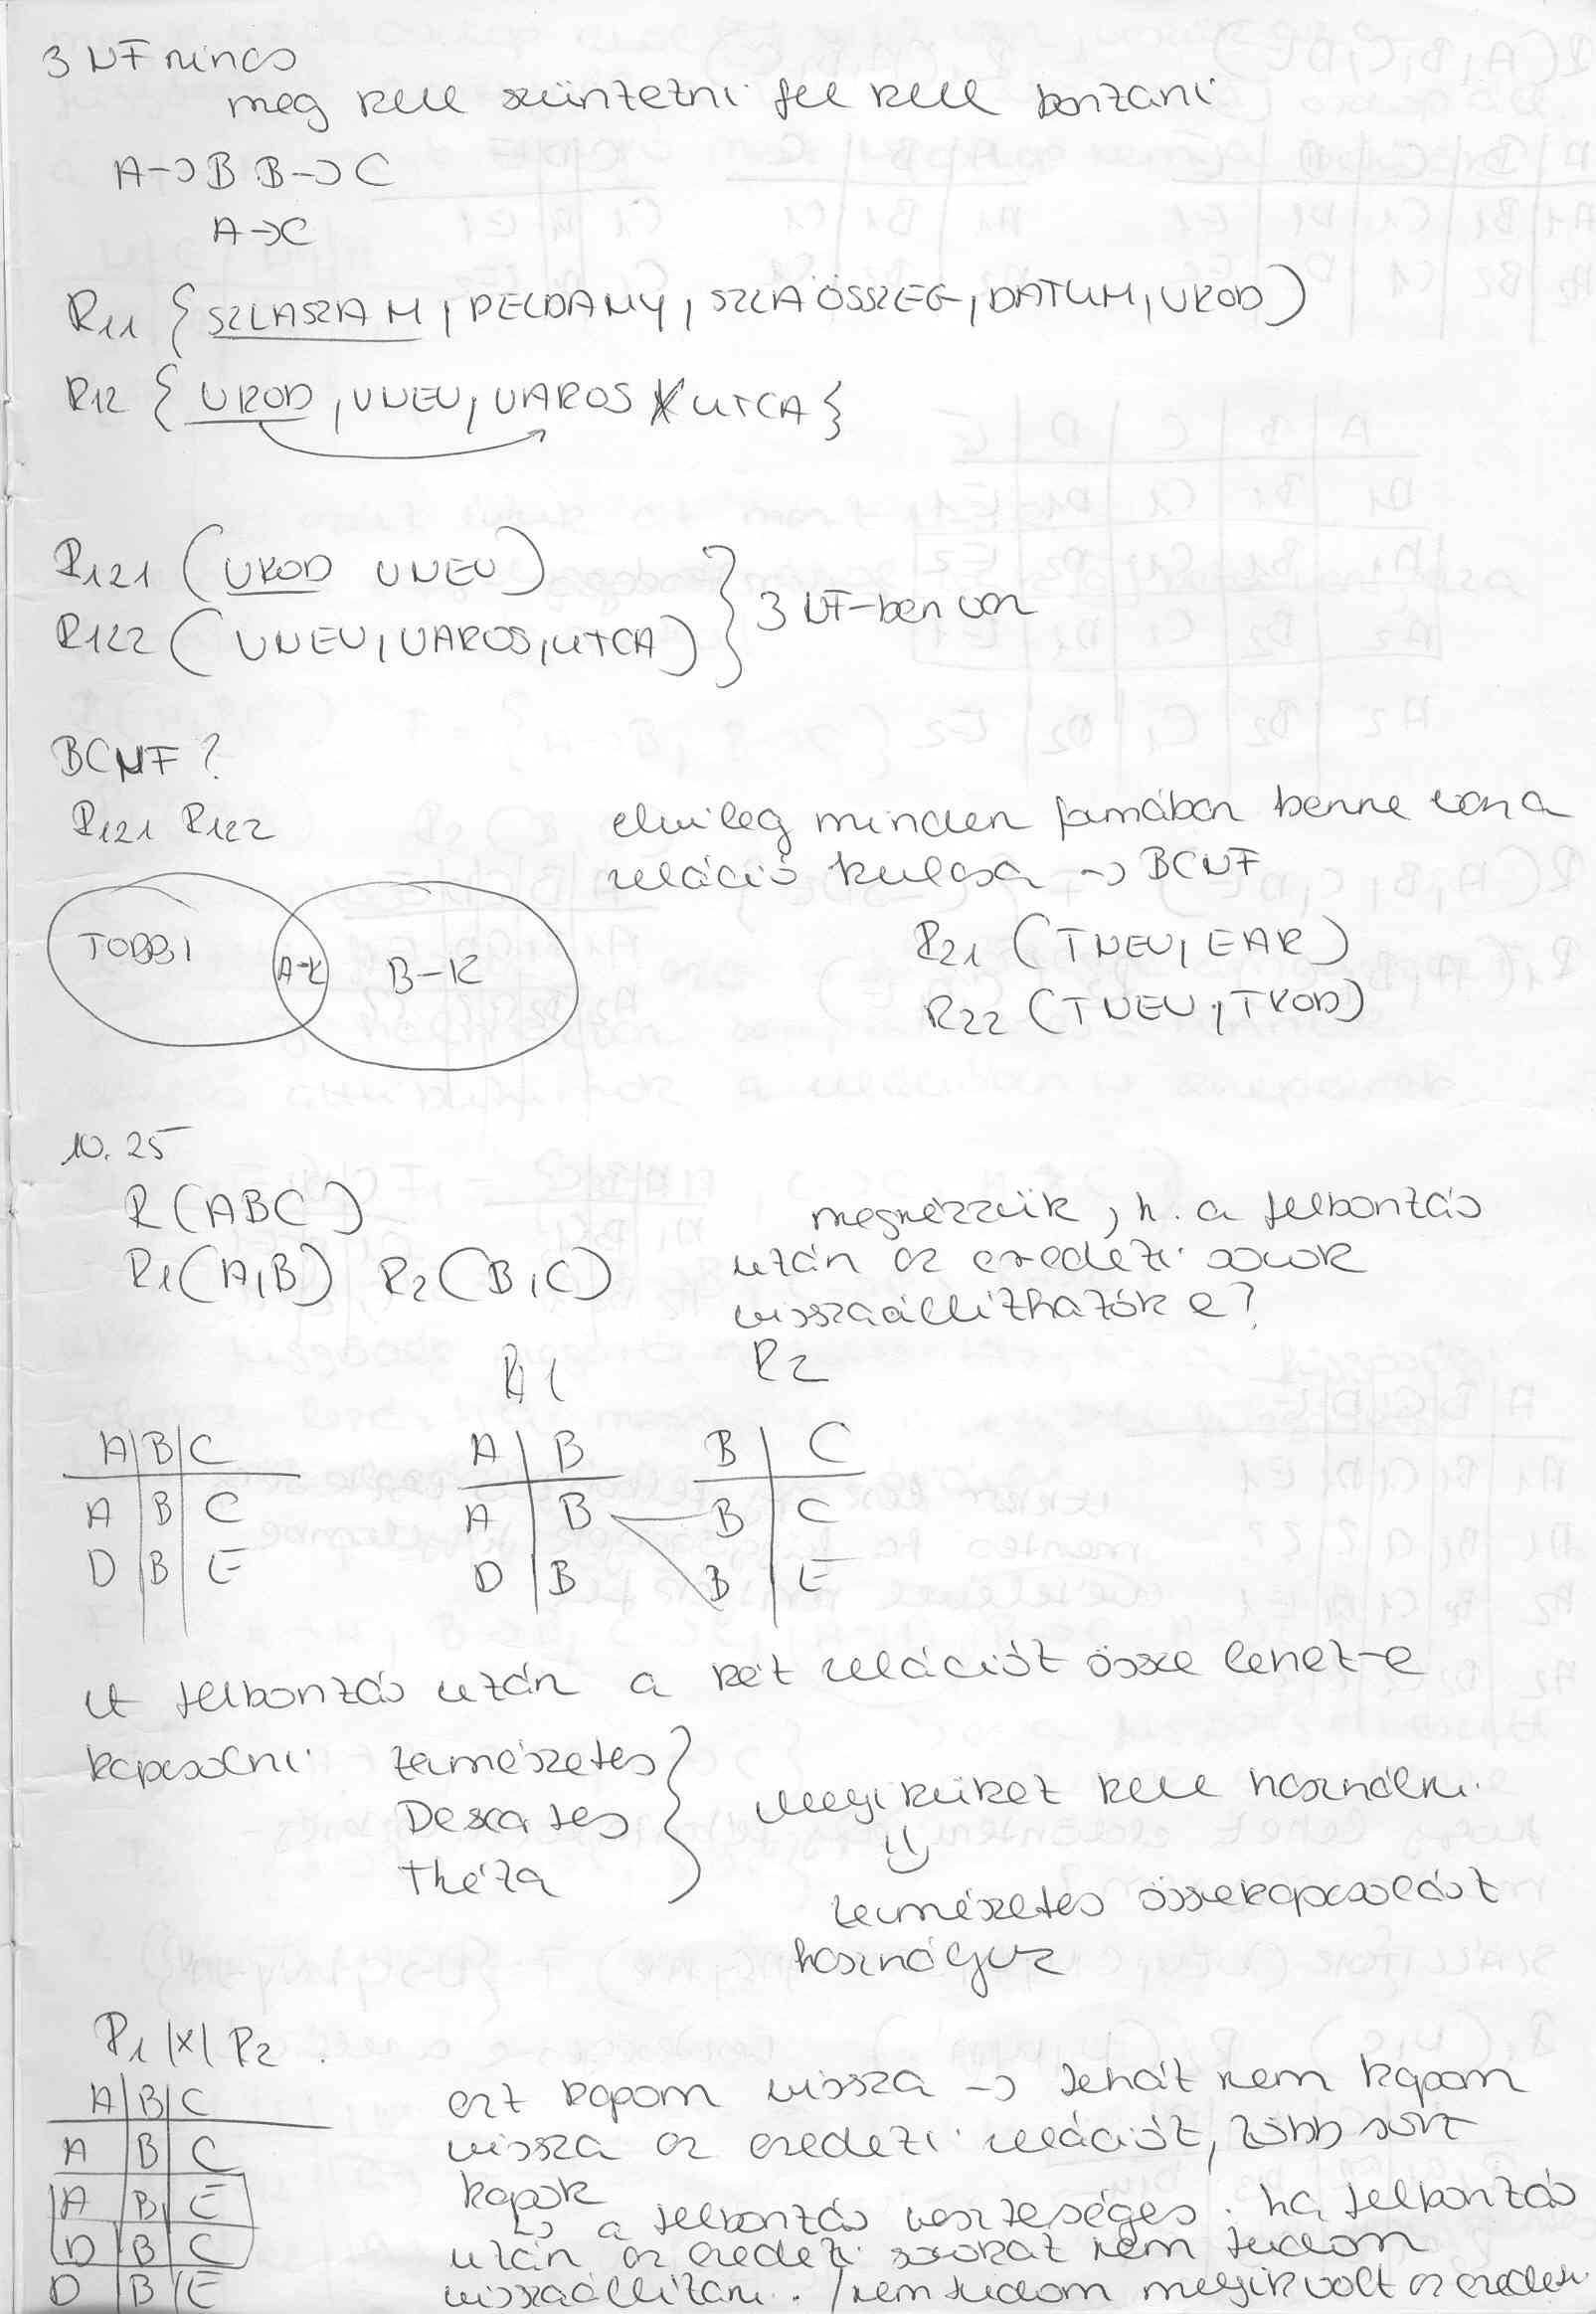 3 NF nincs
meg kell szüntetni fel kell bontani
A->B B->C
A->C
R11 {SZLASZAM, PELDANY, SZLAÖSSZEG, DATUM, VKOD)
R12 {VKOD, VNEV, VAROS UTCA}
R121 (VKOD VNEV)
R122 (VNEV, VAROS, UTCA)
3 NF-ben van
BCNF?
R121 R122
elvileg minden formában benne van a
reláció kulcsa -> BCNF
TOBBI A-K B-K
R21 (TNEV, EAR)
R22 (TNEV, TKOD)
10. 25
R(ABC)
R1(A,B) R2(B,C)
megnézzük, h. a felbontás
után az eredeti sorok
visszaállíthatók e?
R1 R2
A|B|C A|B B|C
A|B|C A|B B|C
D|B|E D|B B|E
felbontás után a két relációt össze lehet-e
kapcsolni természetes
Descates
Théta
Melyiküket kell használni
természetes összekapcsolást
használjuk
R1 |x| R2
A|B|C
A|B|C
A|B|E
D|B|C
D|B|E
ezt kapom vissza -> tehát nem kapom
vissza az eredeti relációt, több sort
kapok
-> a felbontás veszteséges. ha felbontás
után az eredeti sorokat nem tudom
visszaállítani. /nem tudom melyik volt az eredeti